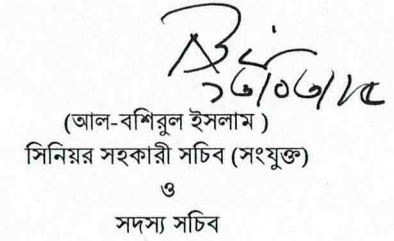 (আল-বশিরুল ইসলাম )
সিনিয়র সহকারী সচিব (সংযুক্ত)
ও
সদস্য সচিব